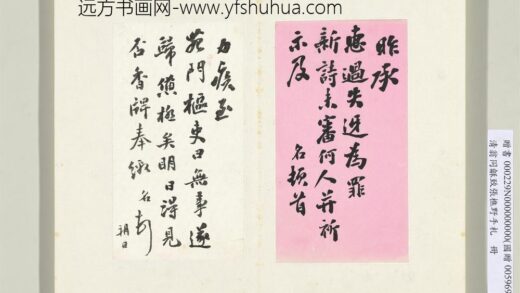 远方书画网-www.yfshuhua.com
昨承
惠過失迓為罪
新詩未審何人并祈
示及 名頓首
力疾至
苑門樞吏曰無事遂
歸憊極矣明日得見
否香牌奉繳 名
贈書 000229N000000000(國贈 005969
清翁同龢致張樵野手札 冊